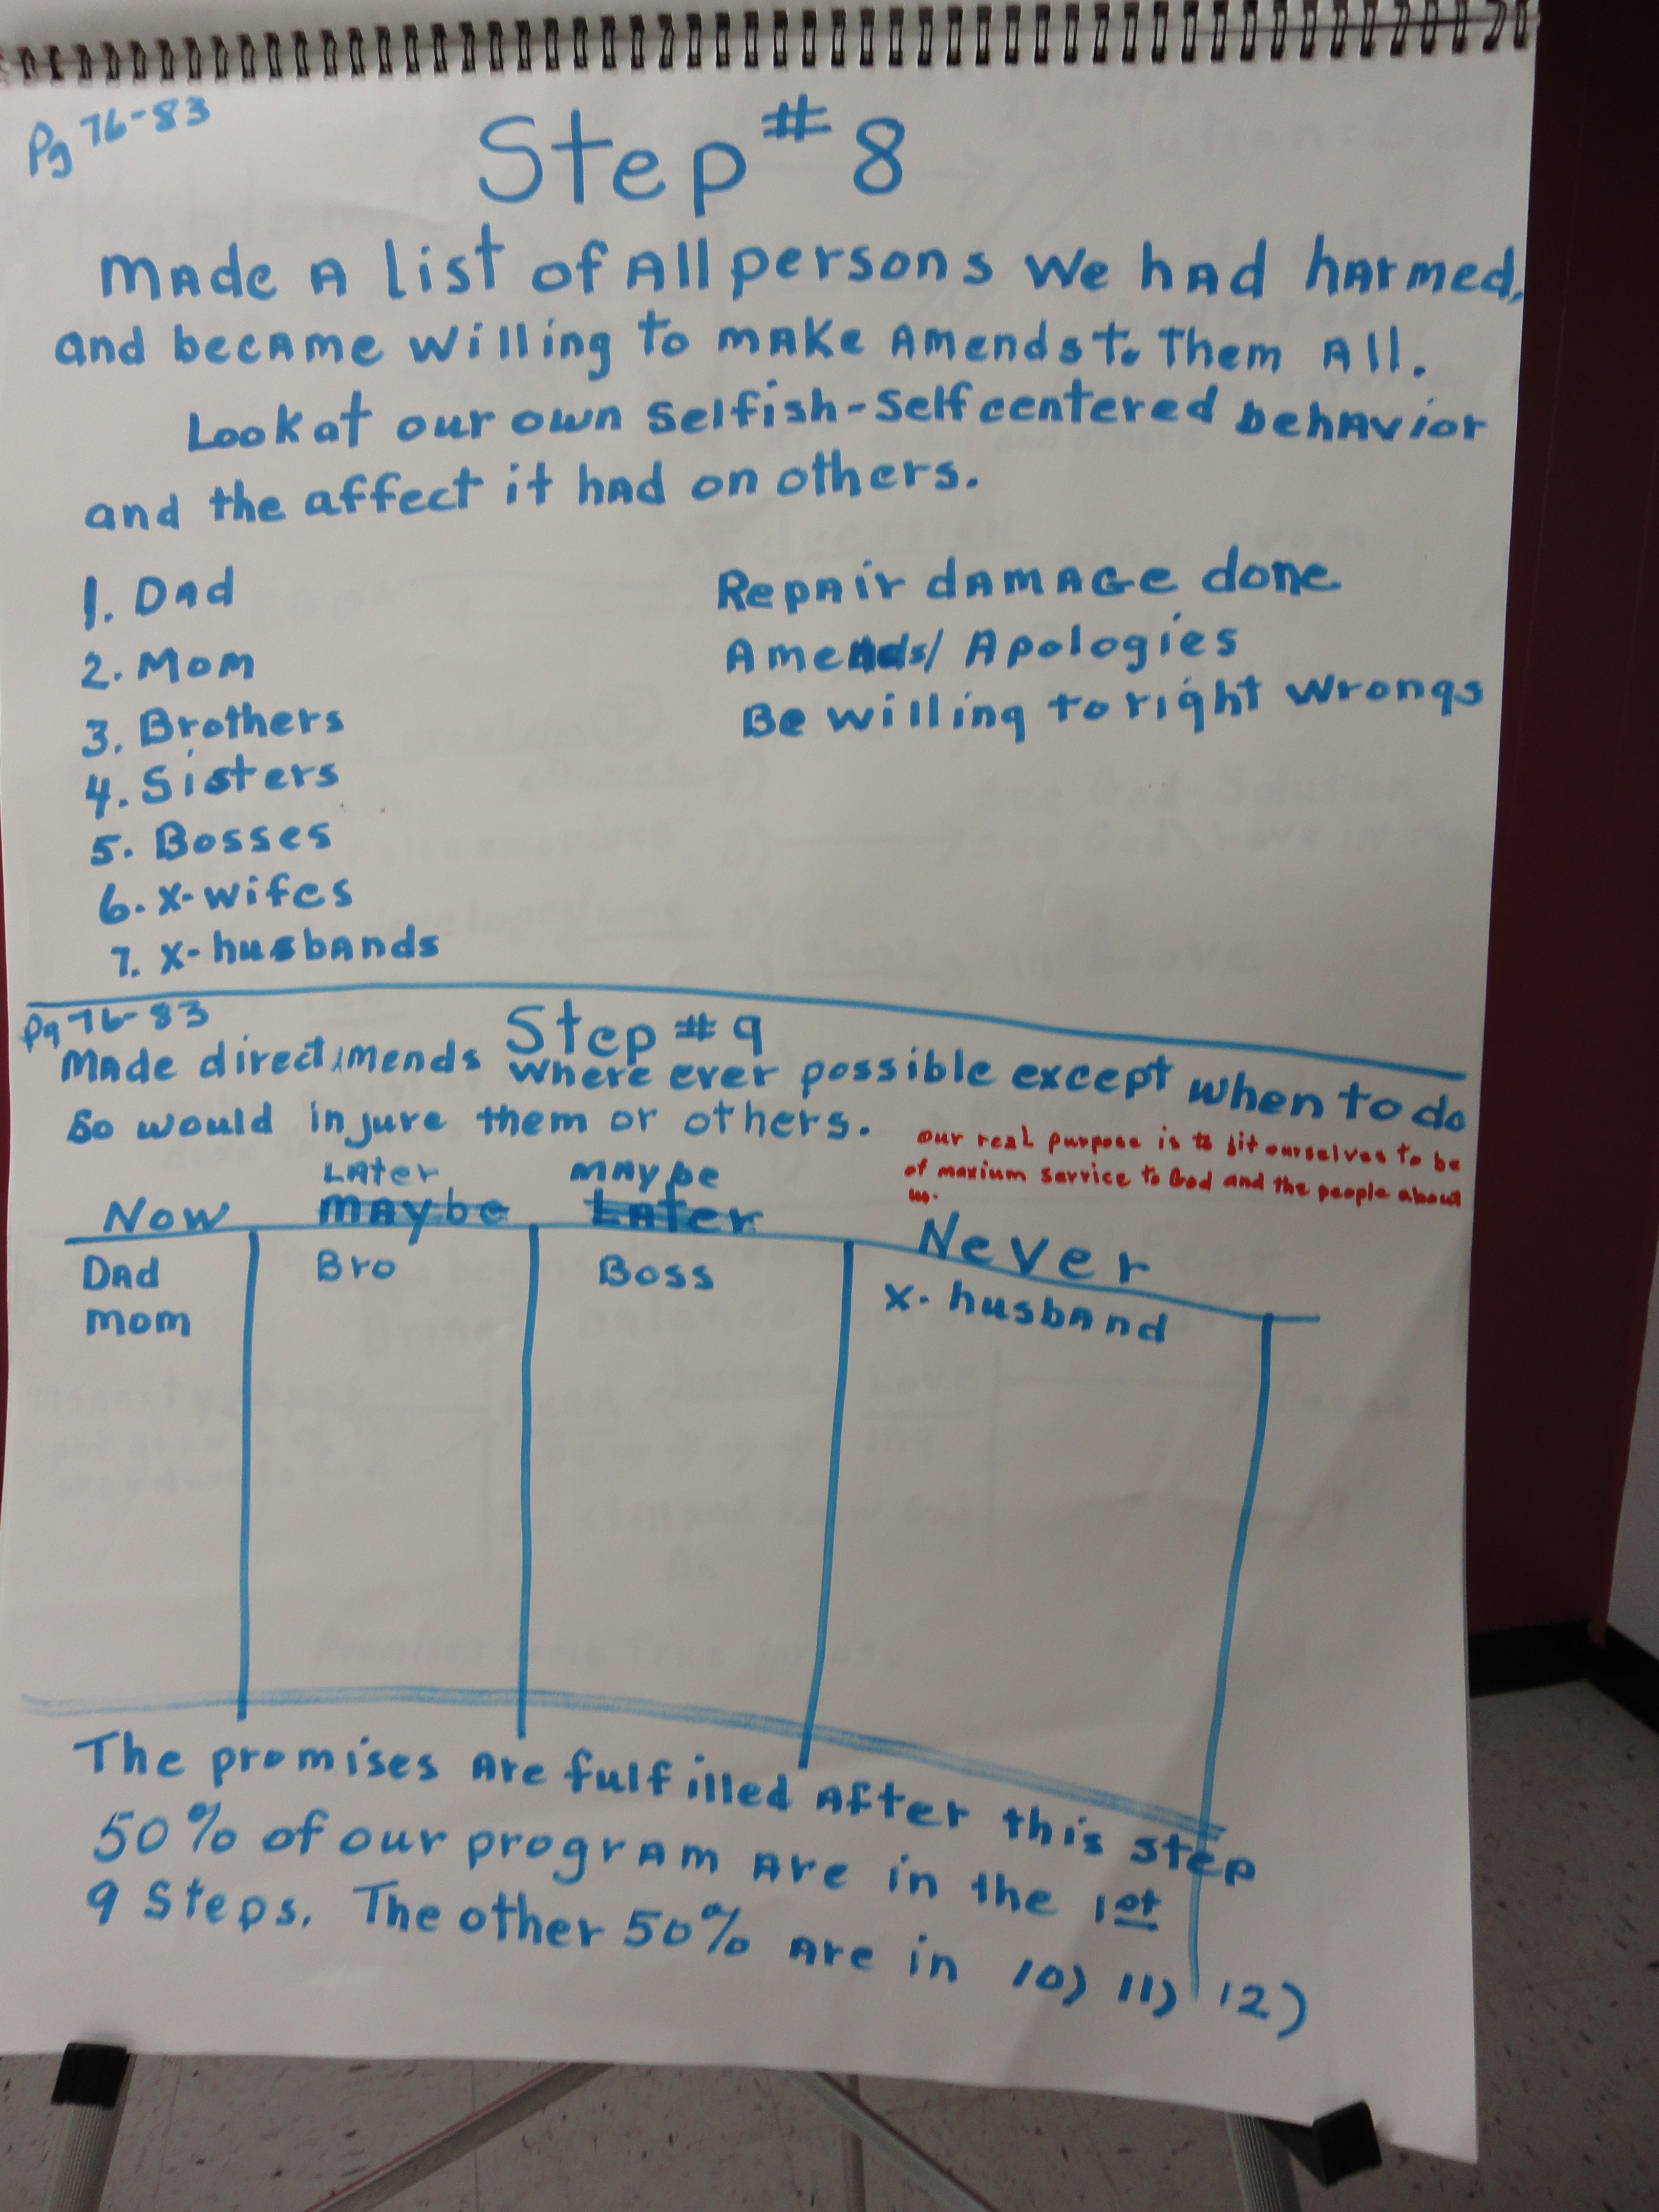 Pg 76-83
Step #8
Made A list of All persons we had harmed,
and became willing to make Amends to Them All.
Look at our own selfish-self centered behavior
and the affect it had on others.
1. Dad
2. Mom
3. Brothers
4. Sisters
5. Bosses
6. X-wifes
7. X-husbands
Repair damage done
Amends/ Apologies
Be willing to right wrongs
Pg 76-83
Step #9
Made direct amends where ever possible except when to do
so would injure them or others.
our real purpose is to fit ourselves to be
of maxium service to God and the people about
us.
Now
Later
maybe
Maybe
Later
Never
Dad
mom
Bro
Boss
X-husband
The promises are fulfilled after this step
50% of our program are in the 1st
9 Steps. The other 50% are in 10) 11) 12)